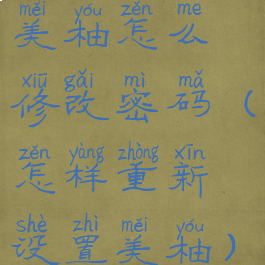 měi yóu zěn me
美柚怎么
xiū gǎi mì mǎ
修改密码（
zěn yàng zhòng xīn
怎样重新
shè zhì měi yóu
设置美柚）